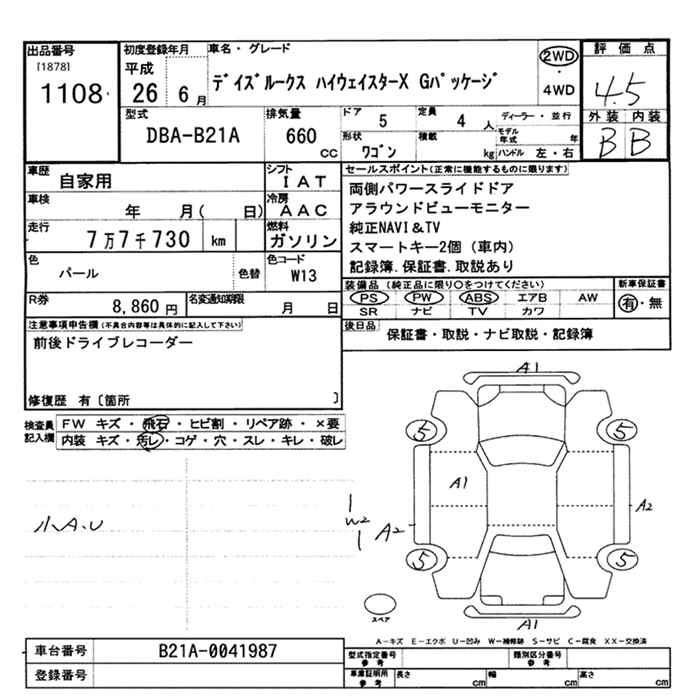 出品番号 初度登録年月 車名・グレード 2WD 評価点
[1878] 平成 デイズルークス ハイウェイスターX Gパッケージ 4WD 4.5
1108 26 6月
型式 排気量 ドア 定員 ディーラー・並行 外装 内装
DBA-B21A 660 CC 5 4 人 モデル年式 年 B B
形状 積載 ワゴン kg ハンドル 左・右
車歴 自家用 シフト IAT セールスポイント(正常に機能するものに限ります)
両側パワースライドドア
車検 年 月( 日) 冷房 AAC アラウンドビューモニター
走行 7万7千730 km 燃料 ガソリン 純正NAVI&TV
スマートキー2個(車内)
色 パール 色替 色コード W13 記録簿.保証書.取説あり
装備品(純正品に限り○をつけてください) 新車保証書
PS PW ABS エアB AW 有・無
SR ナビ TV カワ
R券 8,860円 名変通知期限 月 日
注意事項申告欄(不具合内容等は具体的に記入して下さい) 後日品 保証書・取説・ナビ取説・記録簿
前後ドライブレコーダー
修復歴 有〔箇所 〕
検査員記入欄 FW キズ・飛石・ヒビ割・リペア跡・×要
内装 キズ・汚レ・コゲ・穴・スレ・キレ・破レ
A1
5 5
A1
小A.U W2 A2 A2
5 5
スペア A1
A-キズ E-エクボ U-凹み W-補修跡 S-サビ C-腐食 XX-交換済
車台番号 B21A-0041987 型式指定番号 参考 類別区分番号 参考
登録番号 車庫証明用 参考 長さ cm 幅 cm 高さ cm